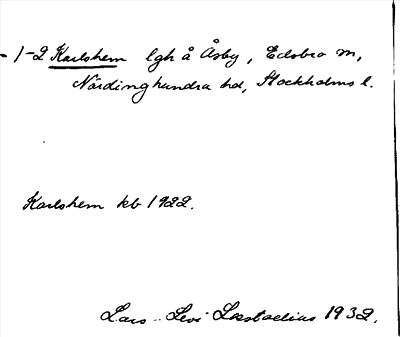 - 1-2 Karlshem lgh å Åsby, Edsbro sn,
Närdinghundra hd, Stockholms l.
Karlshem kb 1922.
Lars-Levi Læstadius 1932.